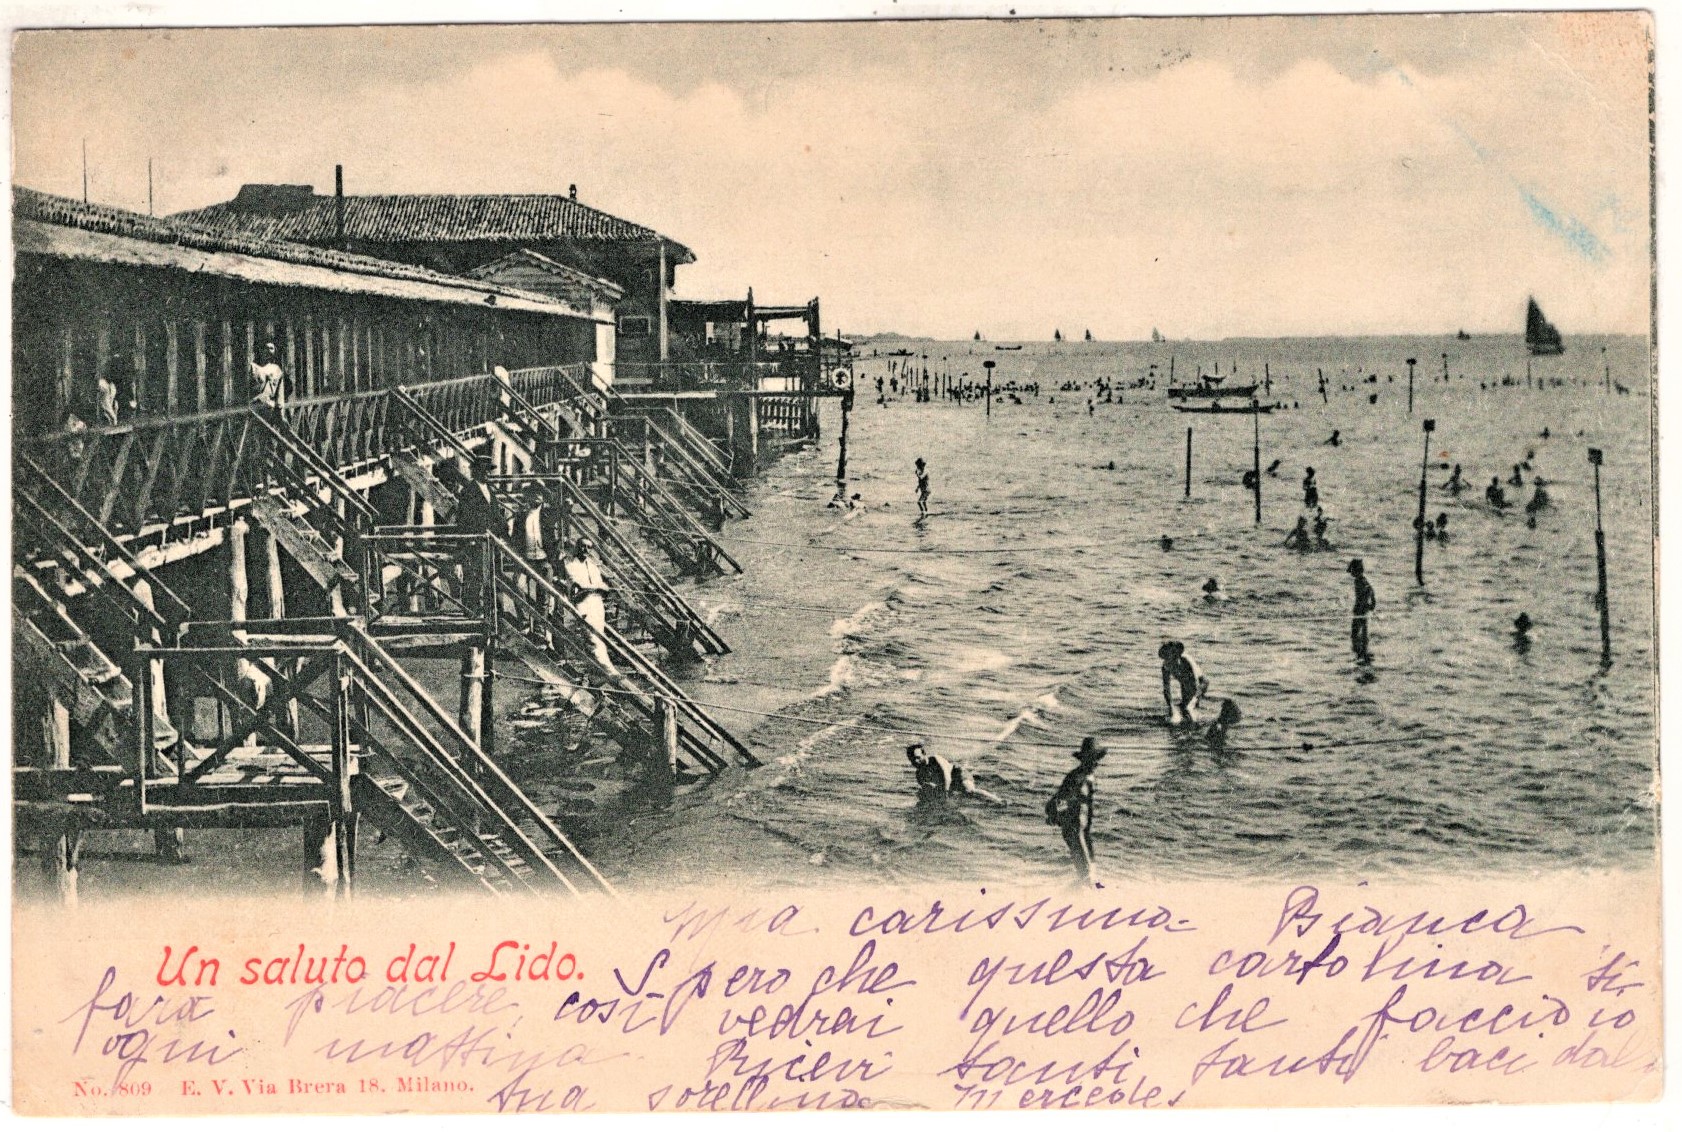 Mia carissima Bianca
Un saluto dal Lido.
Spero che questa cartolina ti
farà piacere, così vedrai quello che faccio io
ogni mattina. Ricevi tanti, tanti baci dalla
tua sorellina Mercedes
No. 809 E. V. Via Brera 18. Milano.